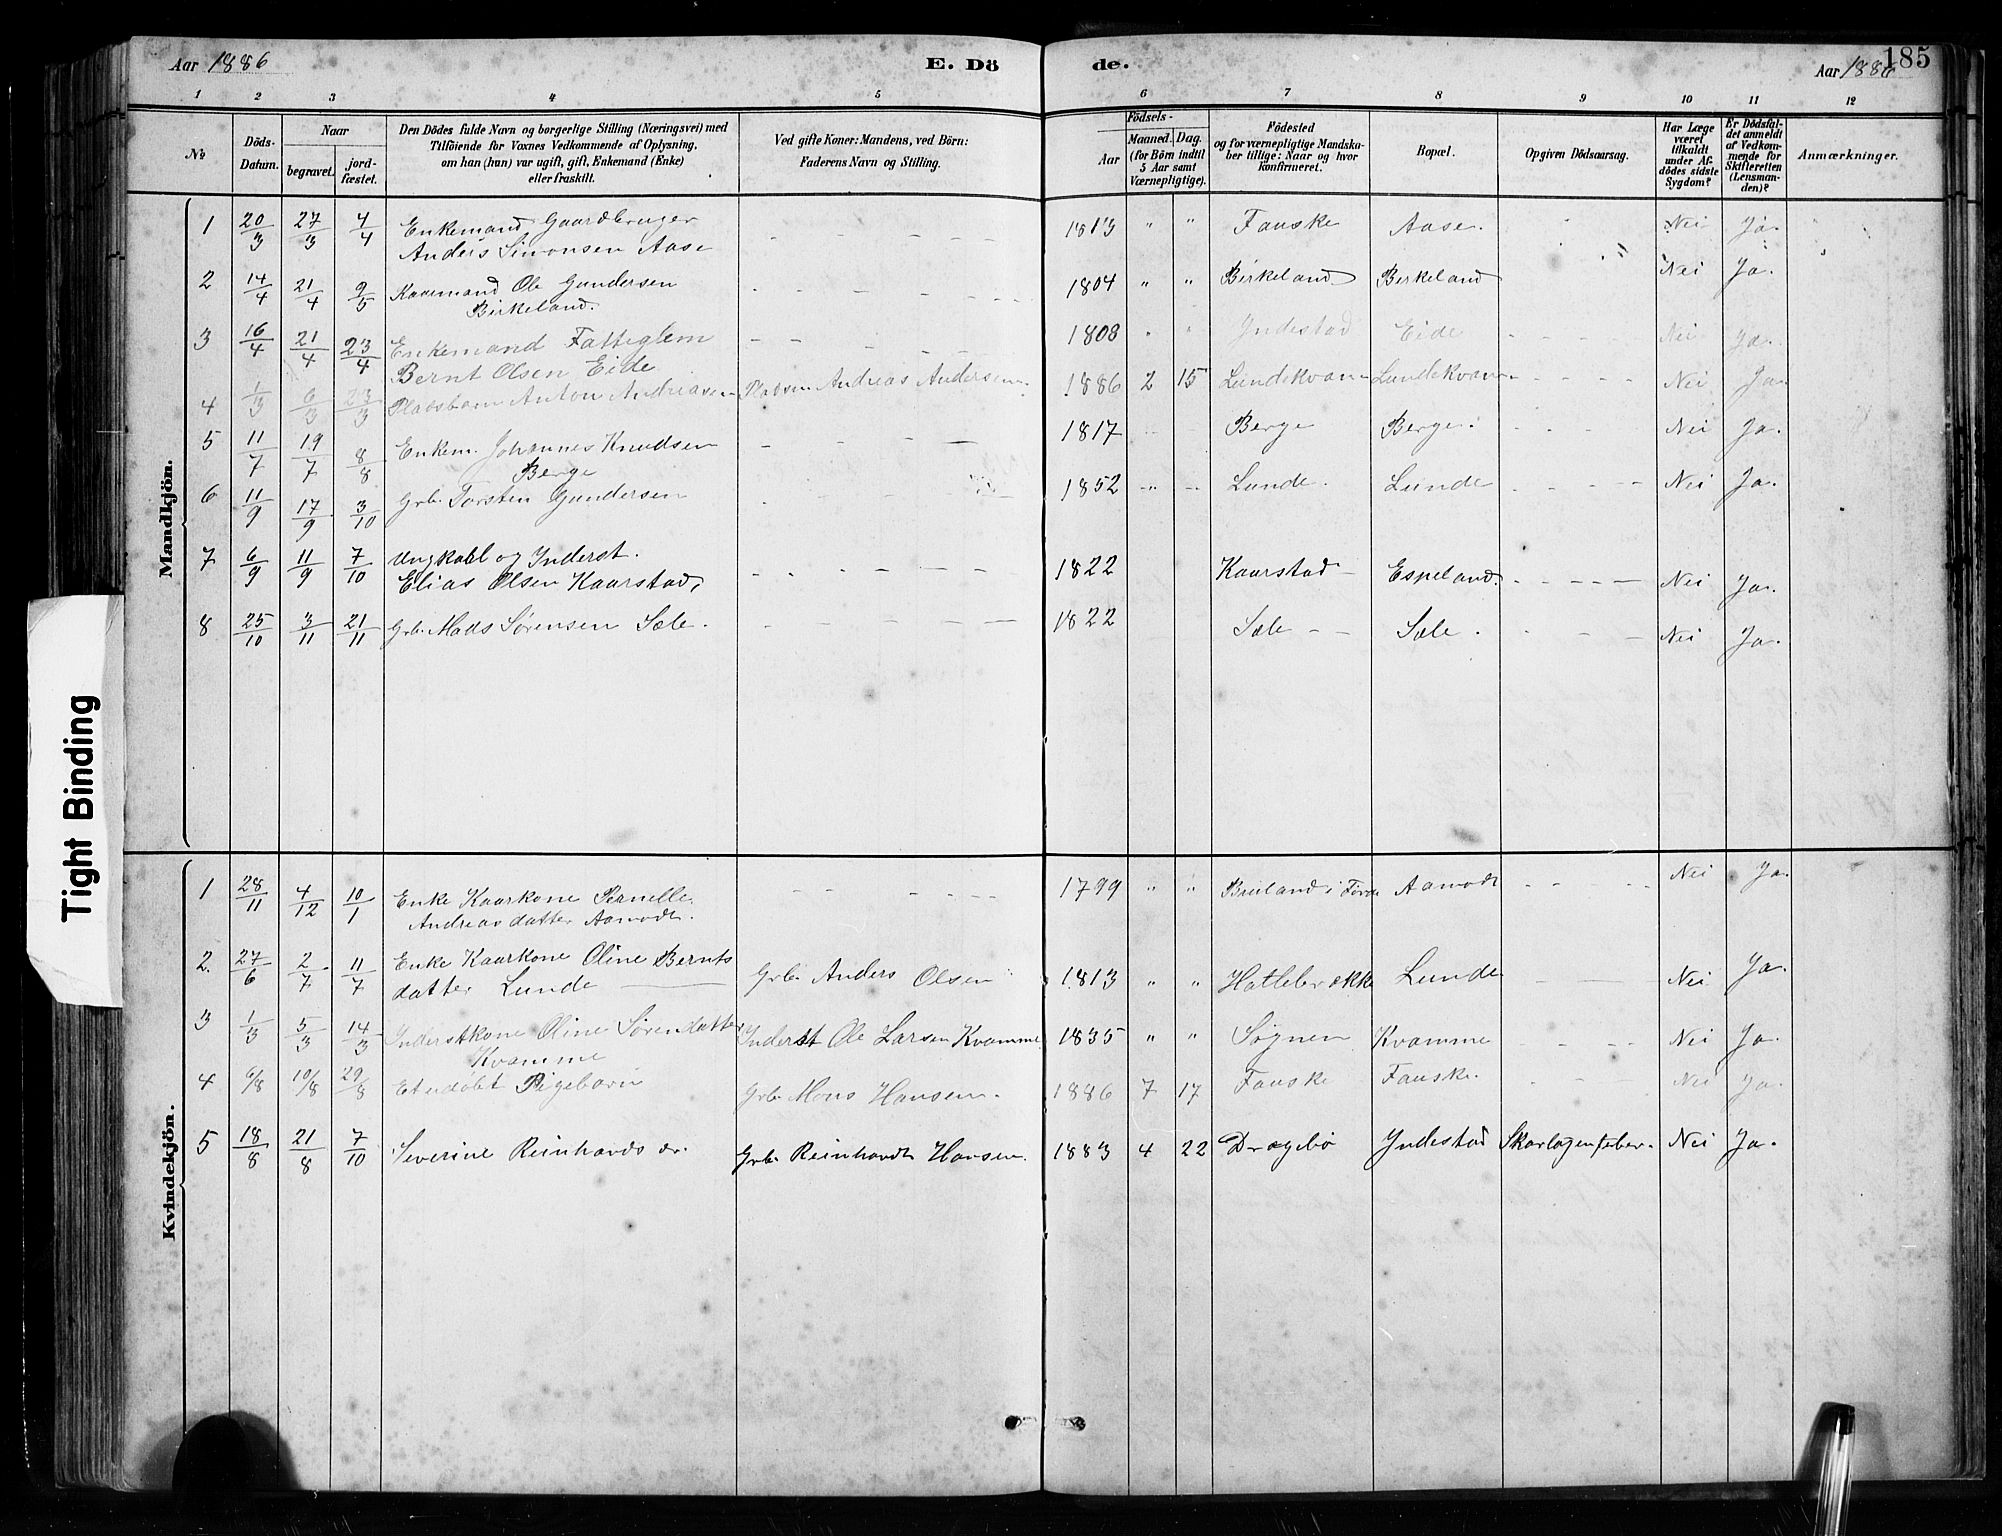 Aar 1886
E. Dö
de.
185
Aar 1886
1 2 3 4 5 6 7 8 9 10 11 12
№
Döds-Datum.
Naar
begravet.
jord-fæstet.
Den Dödes fulde Navn og borgerlige Stilling (Næringsvei) med
Tilföiende for Voxnes Vedkommende af Oplysning,
om han (hun) var ugift, gift, Enkemand (Enke)
eller fraskilt.
Ved gifte Koner: Mandens, ved Börn:
Faderens Navn og Stilling.
Födsels-
Aar
Maaned. Dag.
(for Börn indtil
5 Aar samt
Værnepligtige).
Födested
og for værnepligtige Mandska-
ber tillige: Naar og hvor
konfirmeret.
Bopæl.
Opgiven Dödsaarsag.
Har Læge
været
tilkaldt
under Af-
dödes sidste
Sygdom?
Er Dödsfal-
det anmeldt
af Vedkom-
mende for
Skifteretten
(Lensman-
den)?
Anmærkninger.
Mandkjön.
1 20/3 27/3 4/4 Enkemand Gaardbruger
Anders Simonsen Aase - - - - 1813 " " Fauske Aase Nei Ja.
2 14/4 21/4 9/5 Kaarmand Ole Gundersen
Birkeland. - - - - 1804 " " Birkeland Birkeland Nei Ja.
3 16/4 21/4 23/4 Enkemand Fattiglem
Bernt Olsen Eide - - - - 1808 " " Yndestad Eide - - - - Nei Ja.
4 1/3 6/3 23/3 Pladsbarn Anton Andreasen Pladsm. Andreas Andersen 1886 2 15 Lundekvam Lundekvam - - - Nei Ja
5 11/7 19/7 8/8 Enkem. Johannes Knudsen
Berge - - - - 1817 Berge Berge. - - - Nei Ja.
6 11/9 17/9 3/10 Grb. Torsten Gundersen - - - - 1852 Lunde. Lunde - - - - Nei Ja.
7 6/9 11/9 7/10 Ungkarl og Inderst.
Elias Olsen Kaarstad, - - - - 1822 Kaarstad Espeland. - - - - Nei Ja.
8 25/10 3/11 21/11 Grb. Mads Sørensen Sæle. - - - - 1822 Sæle - - Sæle. - - - Nei Ja.
Kvindekjön.
1 28/11 4/12 10/1 Enke Kaarkone Pernelle
Andreasdatter Aamodt. - - - - 1799 " " Breiland i Førde Aamodt - - - Nei Ja.
2. 27/6 2/7 11/7 Enke Kaarkone Oline Bernts
datter Lunde Grb. Anders Olsen 1813 " " Hatlebrække Lunde - - - Nei Ja.
3 1/3 5/3 14/3 Inderstkone Oline Sørendatter
Kvamme Inderst Ole Larsen Kvamme 1835 " " Søgnen Kvamme - - - - Nei Ja.
4 6/8 10/8 29/8 Et udøbt Pigebarn Grb. Mons Hansen. 1886 7 17 Fauske Fauske. - - - Nei Ja.
5 18/8 21/8 7/10 Severine Reinhards dr. Grb. Reinhardt Hansen. 1883 4 22 Drægebø Yndestad Skarlagensfeber. Nei Ja.
Tight Binding